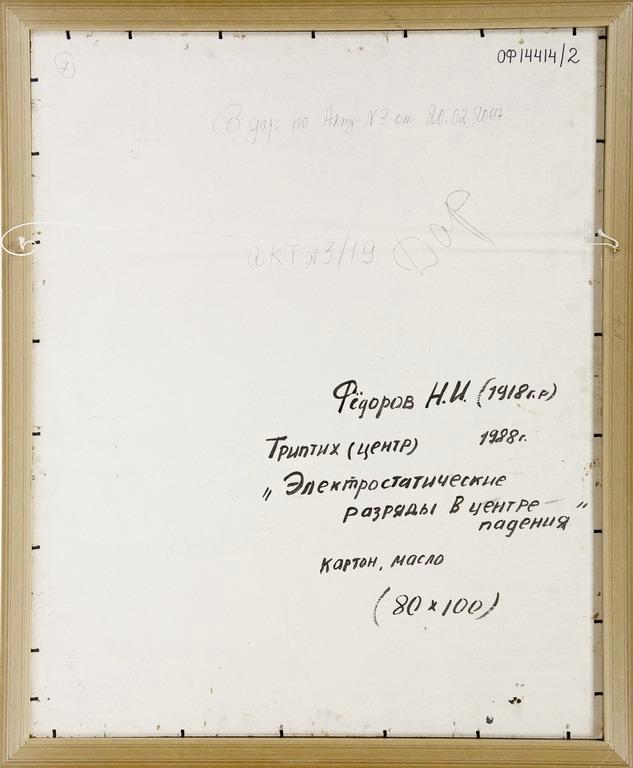 7
ОФ14414/2
В дар по Акту №3 от 20.02.
акт №3/19 Дар
Фёдоров Н.И. (1918г.р)
Триптих (центр) 1988г.
„Электростатические
разряды в центре
падения"
картон, масло
(80 x 100)